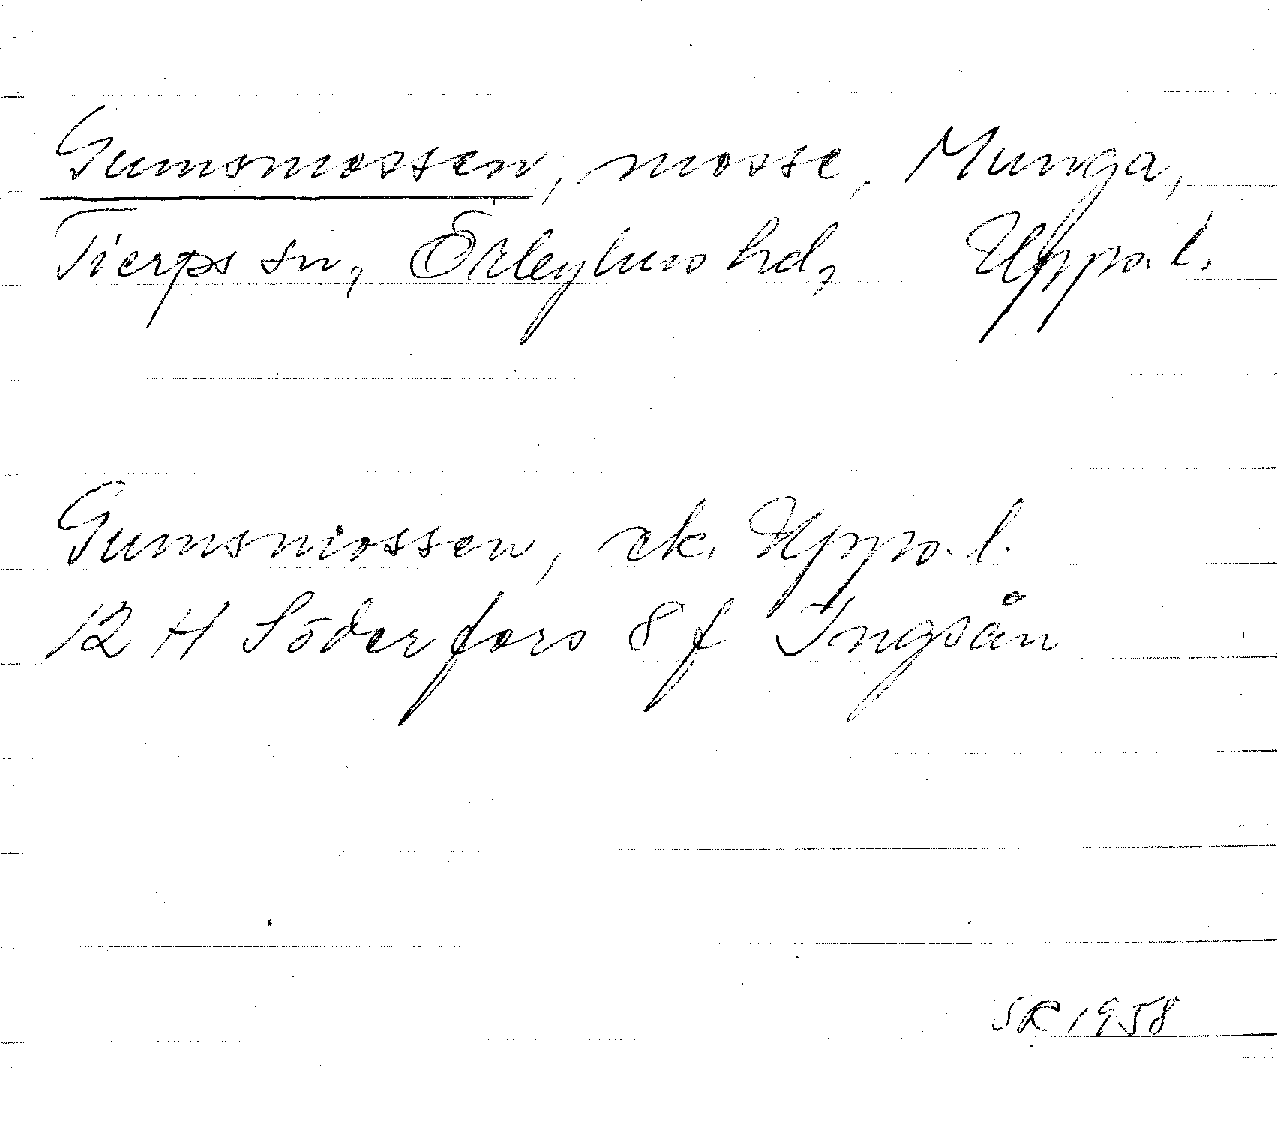 Gumsmossen, mosse, Munga,
Tierps sn, Örbyhus hd, Uppa.l.
Gumsmossen, ek. Uppa.l.
12 H Söderfors 8f Ingsån
SR 1958